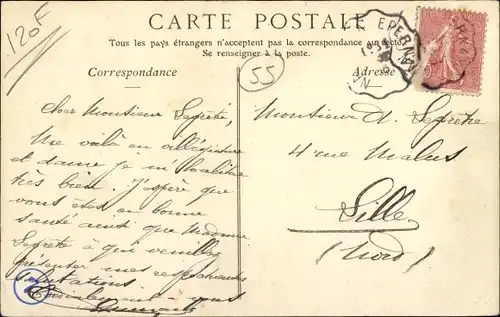 120F
CARTE POSTALE
Tous les pays étrangers n'acceptent pas la correspondance au recto
Se renseigner à la poste.
Correspondance
55
Adresse
EPERNAY
Cher Monsieur Leprêtre,
Me voilà en villégiature
et dame je m'
très bien. J'espère que
vous êtes en bonne
santé ainsi que Madame
Leprêtre à qui veuillez
présenter mes respectueuses
salutations.
Cordialement à vous
Monsieur A. Leprêtre
4 rue Malus
Lille
(Nord)